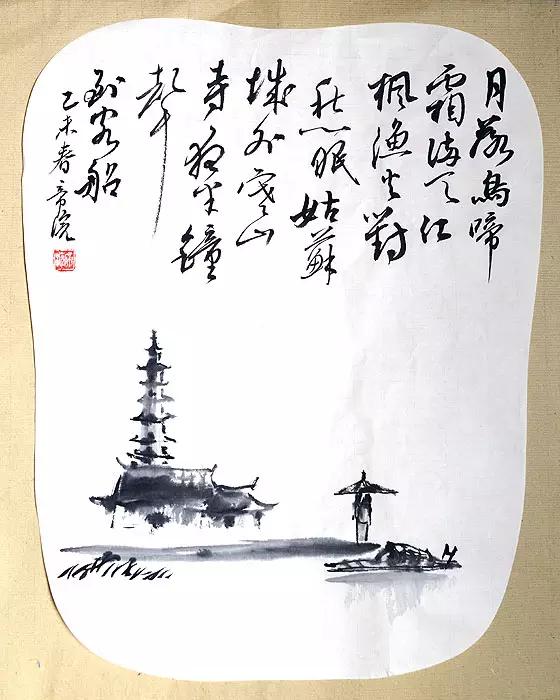 月落烏啼
霜满天江
枫漁火對
愁眠姑蘇
城外寒山
寺夜半鐘
聲
到客船
乙未春